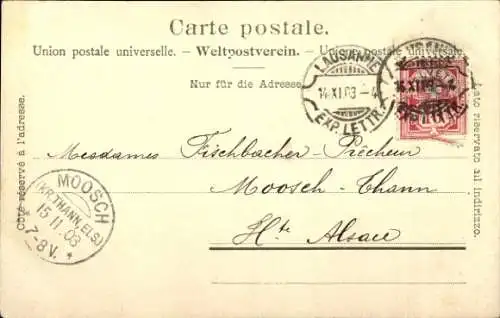 Carte postale.
Union postale universelle. — Weltpostverein. — Unione postale universale.
Nur für die Adresse.
LAUSANNE
14.XI.03 – 4
EXP. LETTR.
14.XI.03 – 4
EXP. LETTR.
Côté réservé à l'adresse.
Lato riservato all' indirizzo.
Mesdames Fischbacher-Prêcheur
Moosch-Thann
Hte Alsace
MOOSCH
(KR. THANN, ELS.)
15 11. 03
7-8 V.